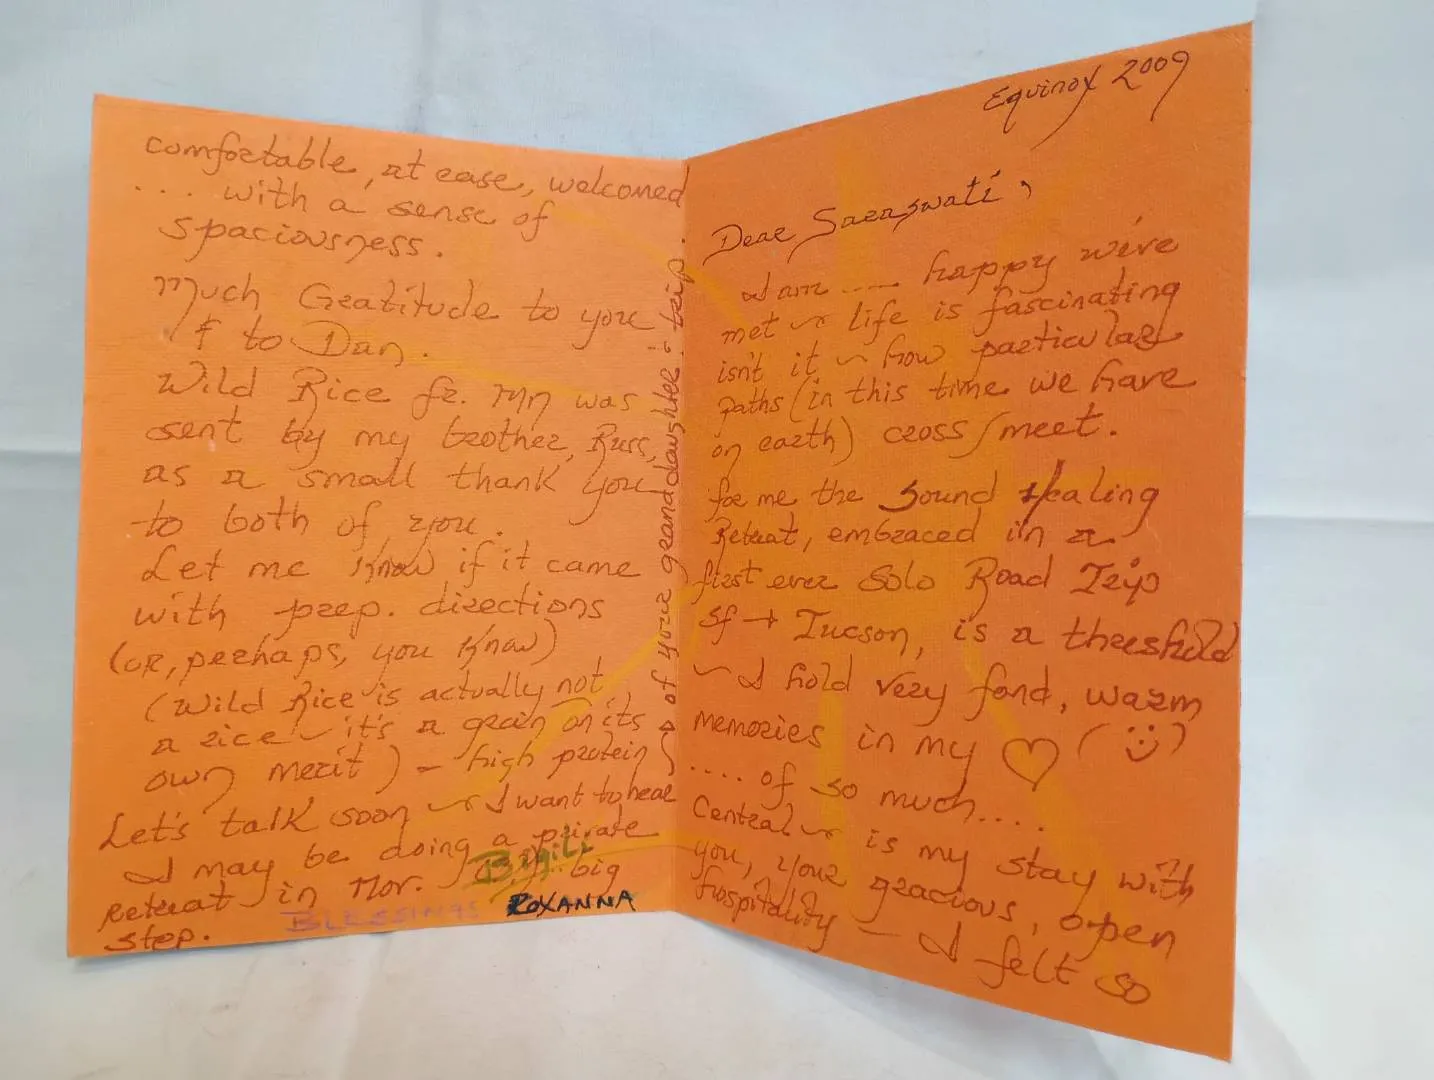 Equinox 2009
Dear Saraswati,
I am .... happy we've
met ~ life is fascinating
isn't it ~ how particular
paths (in this time we have
on earth) cross/meet.
for me the Sound Healing
Retreat, embraced in a
first ever Solo Road Trip
SF → Tucson, is a threshold
~ I hold very fond, warm
memories in my ♡ (☺)
.... of so much....
Central ~ is my stay with
you, your gracious, open
hospitality — I felt so
comfortable, at ease, welcomed
... with a sense of
spaciousness.
Much Gratitude to you
& to Dan.
Wild Rice fr. MN was
sent by my brother, Russ,
as a small thank you
to both of you.
Let me know if it came
with prep. directions
(or, perhaps, you know)
(Wild Rice is actually not
a rice ~ it's a grain on its
own merit) – high protein
Let's talk soon ~ I want to hear
of your granddaughter's trip.
I may be doing a private
Retreat in Nov. big
step.
BLESSINGS ROXANNA